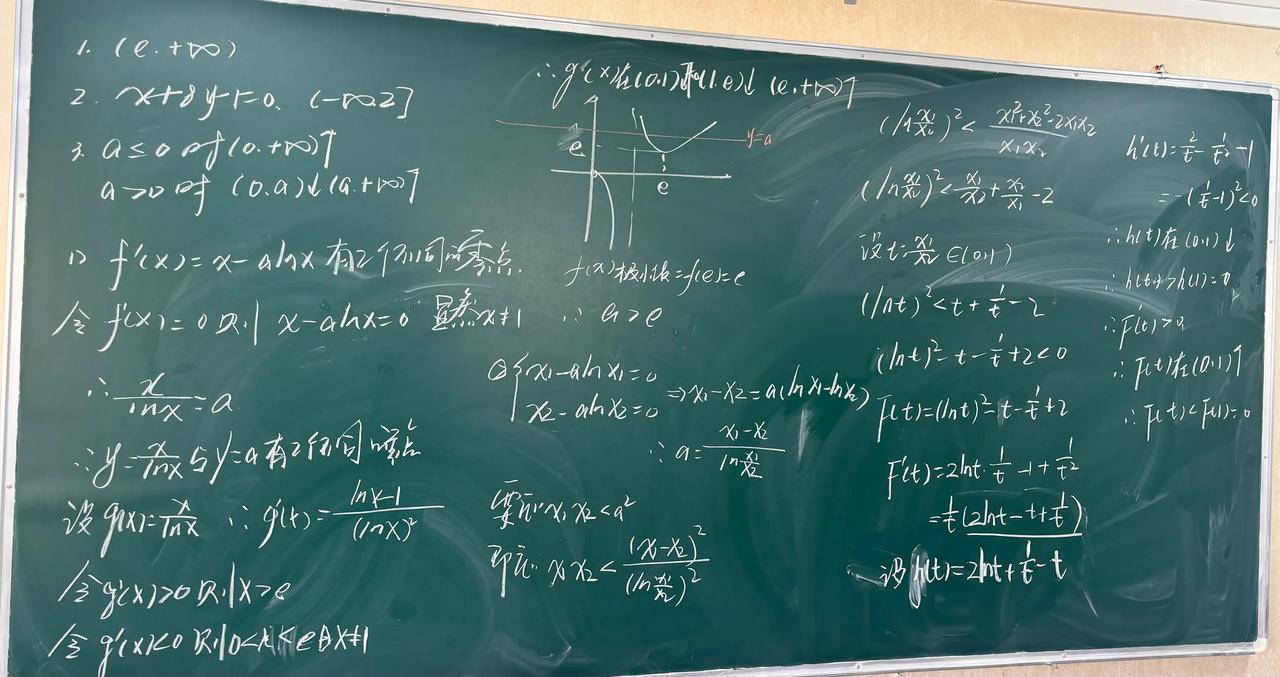 1. (e.+∞)
2. x+8y-1=0. (-∞.2]
3. a≤0 时 (0.+∞)↑
a>0 时 (0.a)↓(a.+∞)↑
1) f'(x)=x-alnx 有2个不同的零点.
令 f'(x)=0 则 x-alnx=0 显然x≠1
∴ x/lnx=a
∴y=x/lnx与y=a有2个不同的零点
设g(x)=x/lnx ∴ g'(t)=(lnx-1)/(lnx)²
令g'(x)>0 则x>e
令g'(x)<0 则0<x<e且x≠1
∴g'(x)在(0.1)和(1.e)↓ (e.+∞)↑
y=a
e
e
f(x)极小值=f(e)=e
∴ a>e
② {x₁-alnx₁=0
x₂-alnx₂=0 ⇒x₁-x₂=a(lnx₁-lnx₂)
∴ a=(x₁-x₂)/ln(x₁/x₂)
要证:x₁x₂<a²
即证: x₁x₂<(x₁-x₂)²/(ln(x₁/x₂))²
(ln(x₁/x₂))²<(x₁²+x₂²-2x₁x₂)/(x₁x₂)
(ln(x₁/x₂))²<x₁/x₂+x₂/x₁-2
设t=x₁/x₂∈(0,1)
(lnt)²<t+1/t-2
(lnt)²-t-1/t+2<0
F(t)=(lnt)²-t-1/t+2
F'(t)=2lnt·1/t-1+1/t²
=1/t(2lnt-t+1/t)
设h(t)=2lnt+1/t-t
h'(t)=2/t-1/t²-1
=-(1/t-1)²<0
∴h(t)在(0,1)↓
∴h(t)>h(1)=0
∴F'(t)>0
∴F(t)在(0,1)↑
∴F(t)<F(1)=0